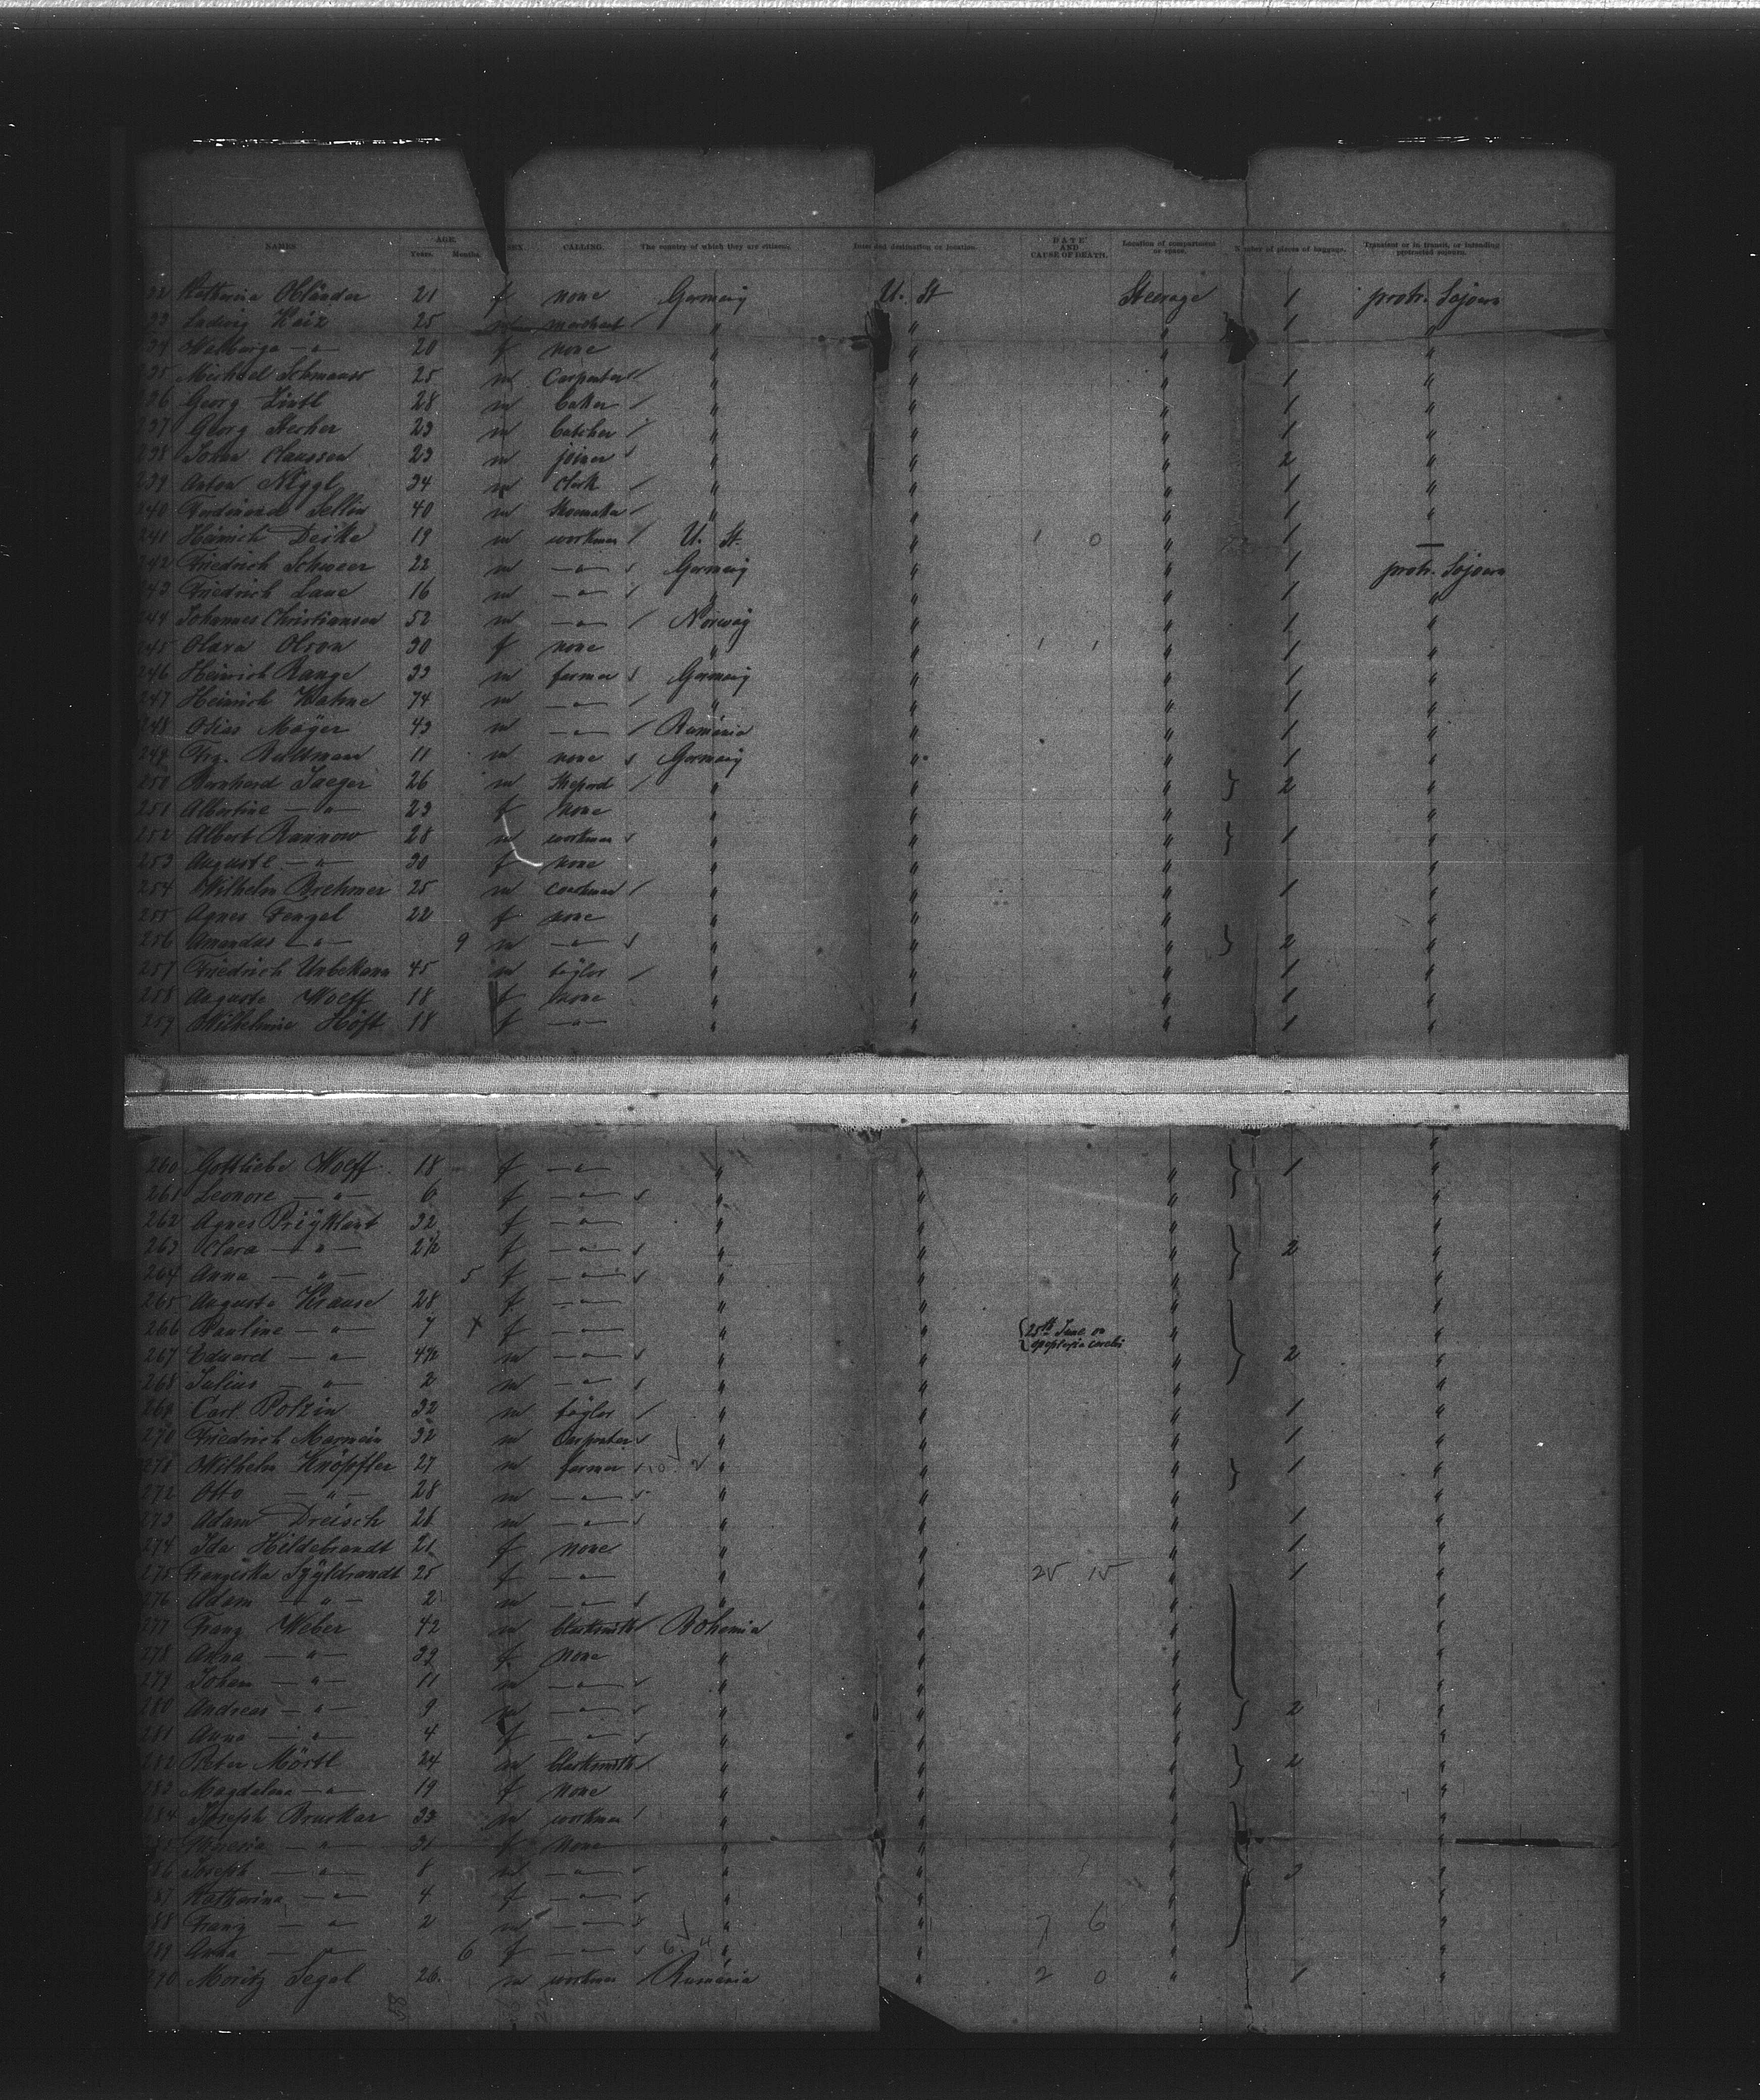 NAMES AGE. Years. Months. SEX. CALLING. The country of which they are citizens. Intended destination or location. DATE AND CAUSE OF DEATH. Location of compartment or space. Number of pieces of baggage. Transient or in transit, or intending protracted sojourn.
32 Katherina Obländer 21 f none Germany U. St Steerage 1 protr. Sojourn
33 Ludwig 25 m merchant " " " 1 "
34 Walburga —"— 20 f none " " " "
235 Michael Schmauss 25 m Carpenter " " " 1 "
236 Georg 28 m baker " " " 1 "
237 Georg Stecher 23 m butcher " " " 1 "
238 Johan Claussen 23 m joiner " " " 2 "
239 Anton Niggl 34 m clerk " " " 1 "
240 Ferdinand Sellin 40 m Shoemaker " " " 1 "
241 Heinrich Deike 19 m workman U. St. " 1 0 " 1 —
242 Friedrich Schweer 22 m —"— Germany " " 1 protr. Sojourn
243 Friedrich Laue 16 m —"— " " " 1 "
244 Johannes Christiansen 52 m —"— Norway " " 1 "
245 Olava Olson 30 f none " " 1 1 " 1 "
246 Heinrich Range 33 m farmer Germany " " 1 "
247 Heinrich Hahne 74 m —"— " " " 1 "
248 Osias Mayer 43 m —"— Rumänia " " 1 "
249 Frz. Bultmann 11 m none Germany " " 1 "
250 Bernhard Jaeger 26 m Sheperd " " " } 2 "
251 Albertine —"— 23 f none " " " "
252 Albert Rannow 28 m workman " " " } 1 "
253 Auguste —"— 30 f none " " " "
254 Wilhelm Brehmer 25 m coachman " " " 1 "
255 Agnes Fengel 22 f none " " " "
256 Amandus —"— 9 m —"— " " " } 2 "
257 Friedrich Unbekann 45 m taylor " " " 1 "
258 Auguste Woeff 18 f none " " " 1 "
259 Wilhelmine Höft 18 f —"— " " " 1 "
260 Gottliebe Woeff 18 f —"— " " " } 1 "
261 Leonore —"— 6 f —"— " " " "
262 Agnes 32 f —"— " " " "
263 Clara —"— 2½ f —"— " " " } 2 "
264 Anna —"— 5 f —"— " " " "
265 Auguste Krause 28 f —"— " " " "
266 Pauline —"— 7 X f —"— " " {25th June on apoplexia "  "
267 Eduard —"— 4½ m —"— " " " } 2 "
268 Julius —"— 2 m —"— " " " "
269 Carl Polzin 32 m taylor " " " 1 "
270 Friedrich Marwein 32 m Carpenter " " " 1 "
271 Wilhelm Knöpfler 27 m farmer " " " } 1 "
272 Otto —"— 28 m —"— " " " "
273 Adam Dreisch 26 m —"— " " " 1 "
274 Ida Hildebrandt 21 f none " " " 1 "
275 Franziska 25 f —"— " " 25 15 " 1 "
276 Adam —"— 2 m —"— " " " "
277 Franz Weber 42 m blacksmith Bohemia " " "
278 Anna —"— 39 f none " " " "
279 Johan —"— 11 m —"— " " " "
280 Andreas —"— 9 m —"— " " " } 2 "
281 Anna —"— 4 f —"— " " " "
282 Peter Mörtl 24 m blacksmith " " " } 2 "
283 Magdalena —"— 19 f none " " " "
284 Joseph Bruckar 33 m workman " " " "
285 Theresia —"— 31 f none " " " "
286 Joseph —"— 8 m —"— " " " } 3 "
287 Katharina —"— 4 f —"— " " " "
288 Franz —"— 2 m —"— " " 7 6 " "
289 Anna —"— 6 f —"— " " " "
290 Moritz Segal 26 m workman Rumänia " 2 0 " 1 "